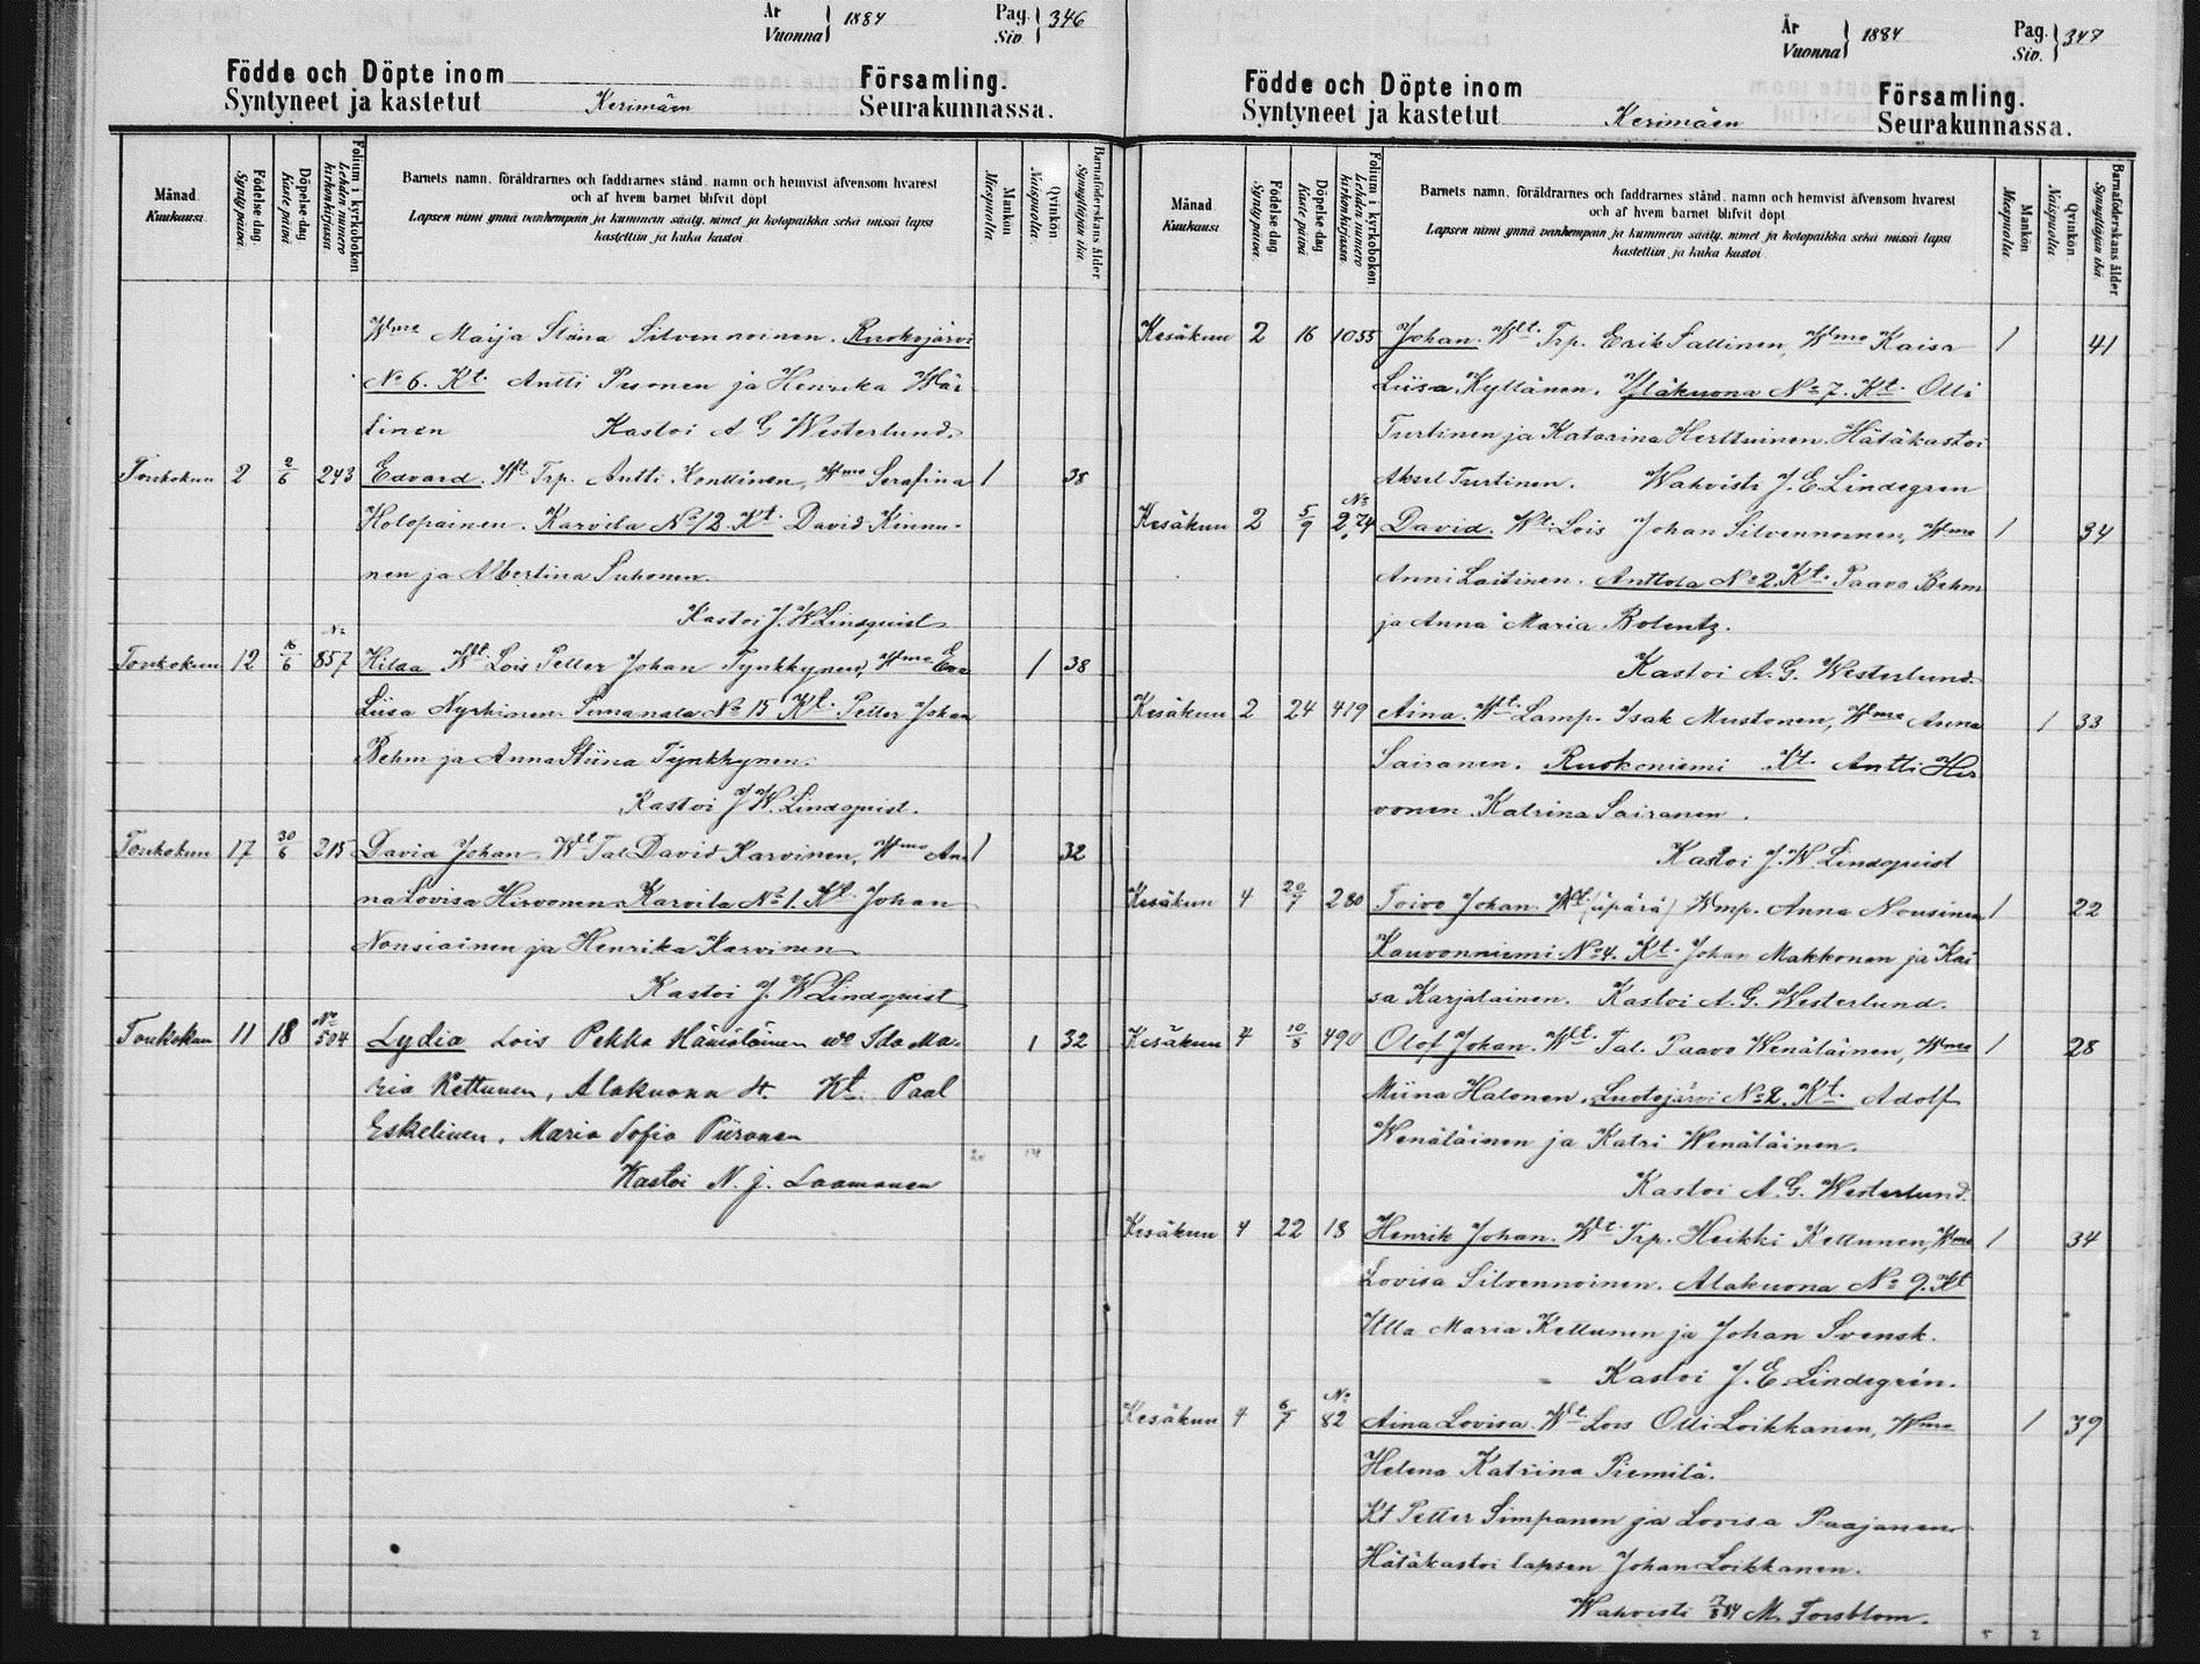 År
Vuonna } 1884
Pag.
Siv. } 346
Födde och Döpte inom Församling.
Syntyneet ja kastetut Kerimäen Seurakunnassa.
Månad. Kuukausi
Födelse dag. Synty päivä.
Döpelse dag Kaste päivä
Folium i kyrkoboken Lehden numero kirkonkirjassa.
Barnets namn, föräldrarnes och faddrarnes stånd, namn och hemvist äfvensom hvarest
och af hvem barnet blifvit döpt
Lapsen nimi ynnä vanhempain ja kummein sääty, nimet ja kotopaikka sekä missä lapsi
kastettiin ja kuka kastoi
Mankön Miespuolta
Qvinkön Naispuolta.
Barnaföderskans ålder Synnyttäjän ikä.
Wmo Maija Stina Silvennoinen. Ruokojärvi
No 6. Kt. Antti Pesonen ja Henrika Wär
tinen Kastoi A G Westerlund.
Toukokuu 2 2/6 243 Edvard. Wlt. Trp. Antti Konttinen, Wmo Serafina 1 38
Holopainen. Karvila No 12. Kt. David Kinnu-
nen ja Albertina Suhonen.
Kastoi J. W Lindquist
Toukokuu 12 16/6 No 857 Hilda Wlt. Lois Petter Johan Tynkkynen, Wmo Eva 1 38
Liisa Nyrhinen. Simanala No 15 Kt. Petter Johan
Behm ja Anna Stiina Tynkkynen.
Kastoi J W. Lindquist.
Toukokuu 17 30/6 215 David Johan. Wlt Tal David Karvinen, Wmo An 1 32
na Lovisa Hirvonen. Karvila No 1. Kt. Johan
Nousiainen ja Henrika Karvinen
Kastoi J. W Lindquist
Toukokuu 11 18 No 504 Lydia Lois Pekka Hämäläinen wo Ida Ma- 1 32
ria Kettunen, Alakuona 4. Kt. Paal
Eskelinen, Maria Sofia Piironen
20 14
Kastoi N. J. Laamanen
År
Vuonna } 1884
Pag.
Siv. } 347
Födde och Döpte inom Församling.
Syntyneet ja kastetut Kerimäen Seurakunnassa.
Månad. Kuukausi
Födelse dag. Synty päivä.
Döpelse dag Kaste päivä
Folium i kyrkoboken Lehden numero kirkonkirjassa.
Barnets namn, föräldrarnes och faddrarnes stånd, namn och hemvist äfvensom hvarest
och af hvem barnet blifvit döpt
Lapsen nimi ynnä vanhempain ja kummein sääty, nimet ja kotopaikka sekä missä lapsi
kastettiin ja kuka kastoi
Mankön Miespuolta
Qvinkön Naispuolta
Barnaföderskans ålder Synnyttäjän ikä
Kesäkuu 2 16 1055 Johan. Wlt. Trp. Erik Sallinen, Wmo Kaisa 1 41
Liisa Kyllänen. Yläkuona No 7. Kt. Olli
Turtinen ja Katarina Herttuinen. Hätäkastoi
Aksel Turtinen. Wahvisti J. E Lindegren
Kesäkuu 2 5/9 No 274 David. Wlt. Lois Johan Silvennoinen, Wmo 1 34
Anni Laitinen. Anttola No 2. Kt. Paavo Behm
ja Anna Maria Bolentz.
Kastoi A. G. Westerlund.
Kesäkuu 2 24 419 Aina. Wlt. Lamp. Isak Mustonen, Wmo Anna 1 33
Sairanen. Ruokoniemi Kt. Antti Hir
vonen. Katrina Sairanen.
Kastoi J. W Lindquist
Kesäkuu 4 20/7 280 Toivo Johan. Wlt. (äpärä) Wmp. Anna Nousinen 1 22
Kauvonniemi No 4. Kt. Johan Makkonen ja Kai
sa Karjalainen. Kastoi A. G. Westerlund.
Kesäkuu 4 10/8 490 Olof Johan. Wlt. Tal. Paavo Wenäläinen, Wmo 1 28
Miina Halonen. Luotojärvi No 2. Kt. Adolf
Wenäläinen ja Katri Wenäläinen.
Kastoi A. G. Westerlund.
Kesäkuu 4 22 13 Henrik Johan. Wlt. Trp. Heikki Kettunen, Wmo 1 34
Lovisa Silvennoinen. Alakuona No 9. Kt
Ulla Maria Kettunen ja Johan Svensk.
Kastoi J. E. Lindegrén.
Kesäkuu 4 6/7 No 82 Aina Lovisa. Wlt. Lois Olli Loikkanen, Wmo 1 39
Helena Katriina Piemilä.
Kt Petter Simpanen ja Lovisa Paajanen
Hätäkastoi lapsen Johan Loikkanen.
Wahvisti 7/8 84 M. Forsblom.
5 2